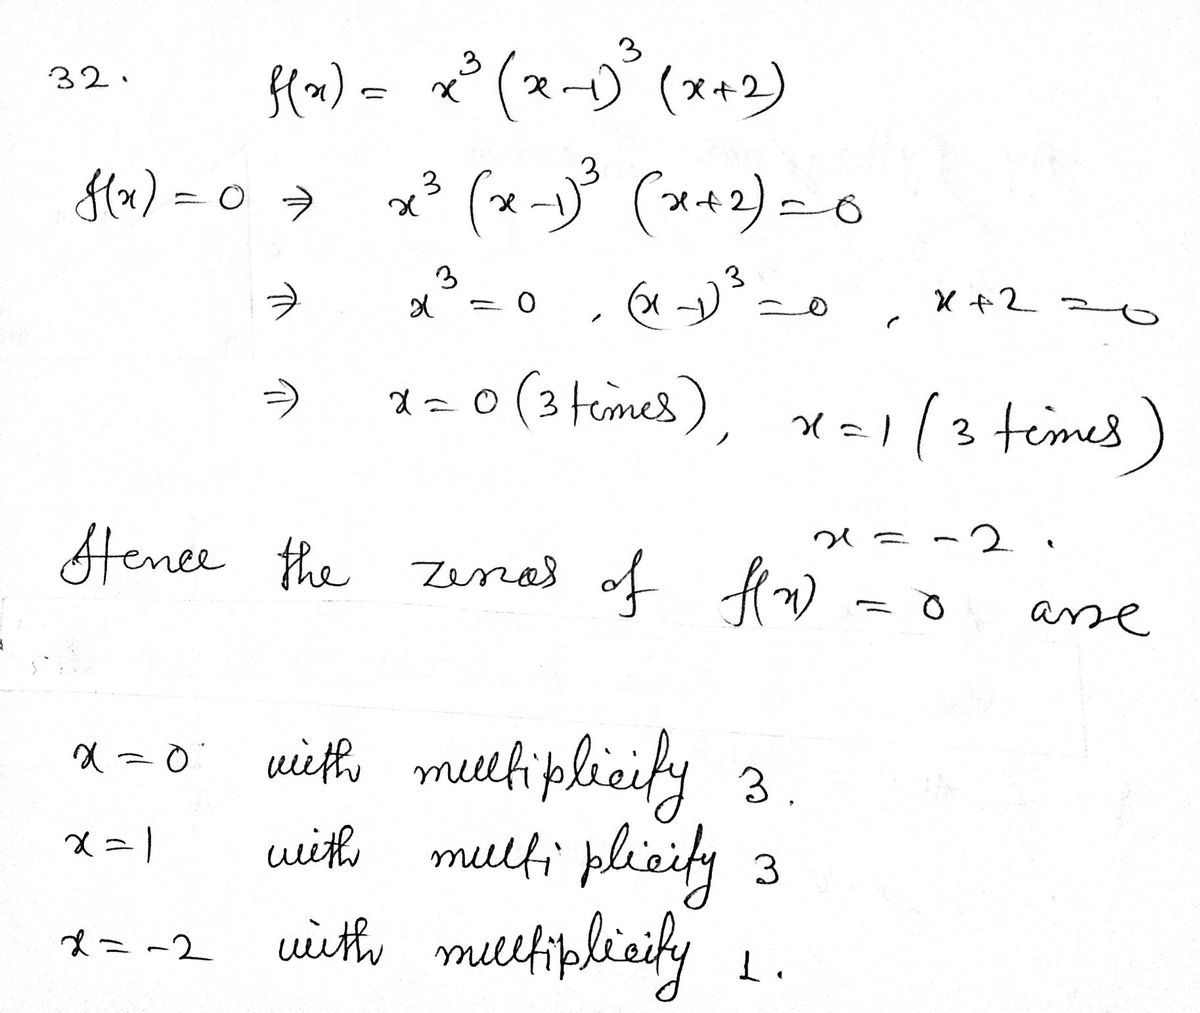 32. f(x) = x³ (x-1)³ (x+2)
f(x) = 0 ⇒ x³ (x-1)³ (x+2) = 0
⇒ x³ = 0 , (x-1)³ = 0 , x+2 = 0
⇒ x = 0 (3 times), x = 1 (3 times)
x = -2 .
Hence the zeros of f(x) = 0 are
x = 0 with multiplicity 3.
x = 1 with multiplicity 3
x = -2 with multiplicity 1.